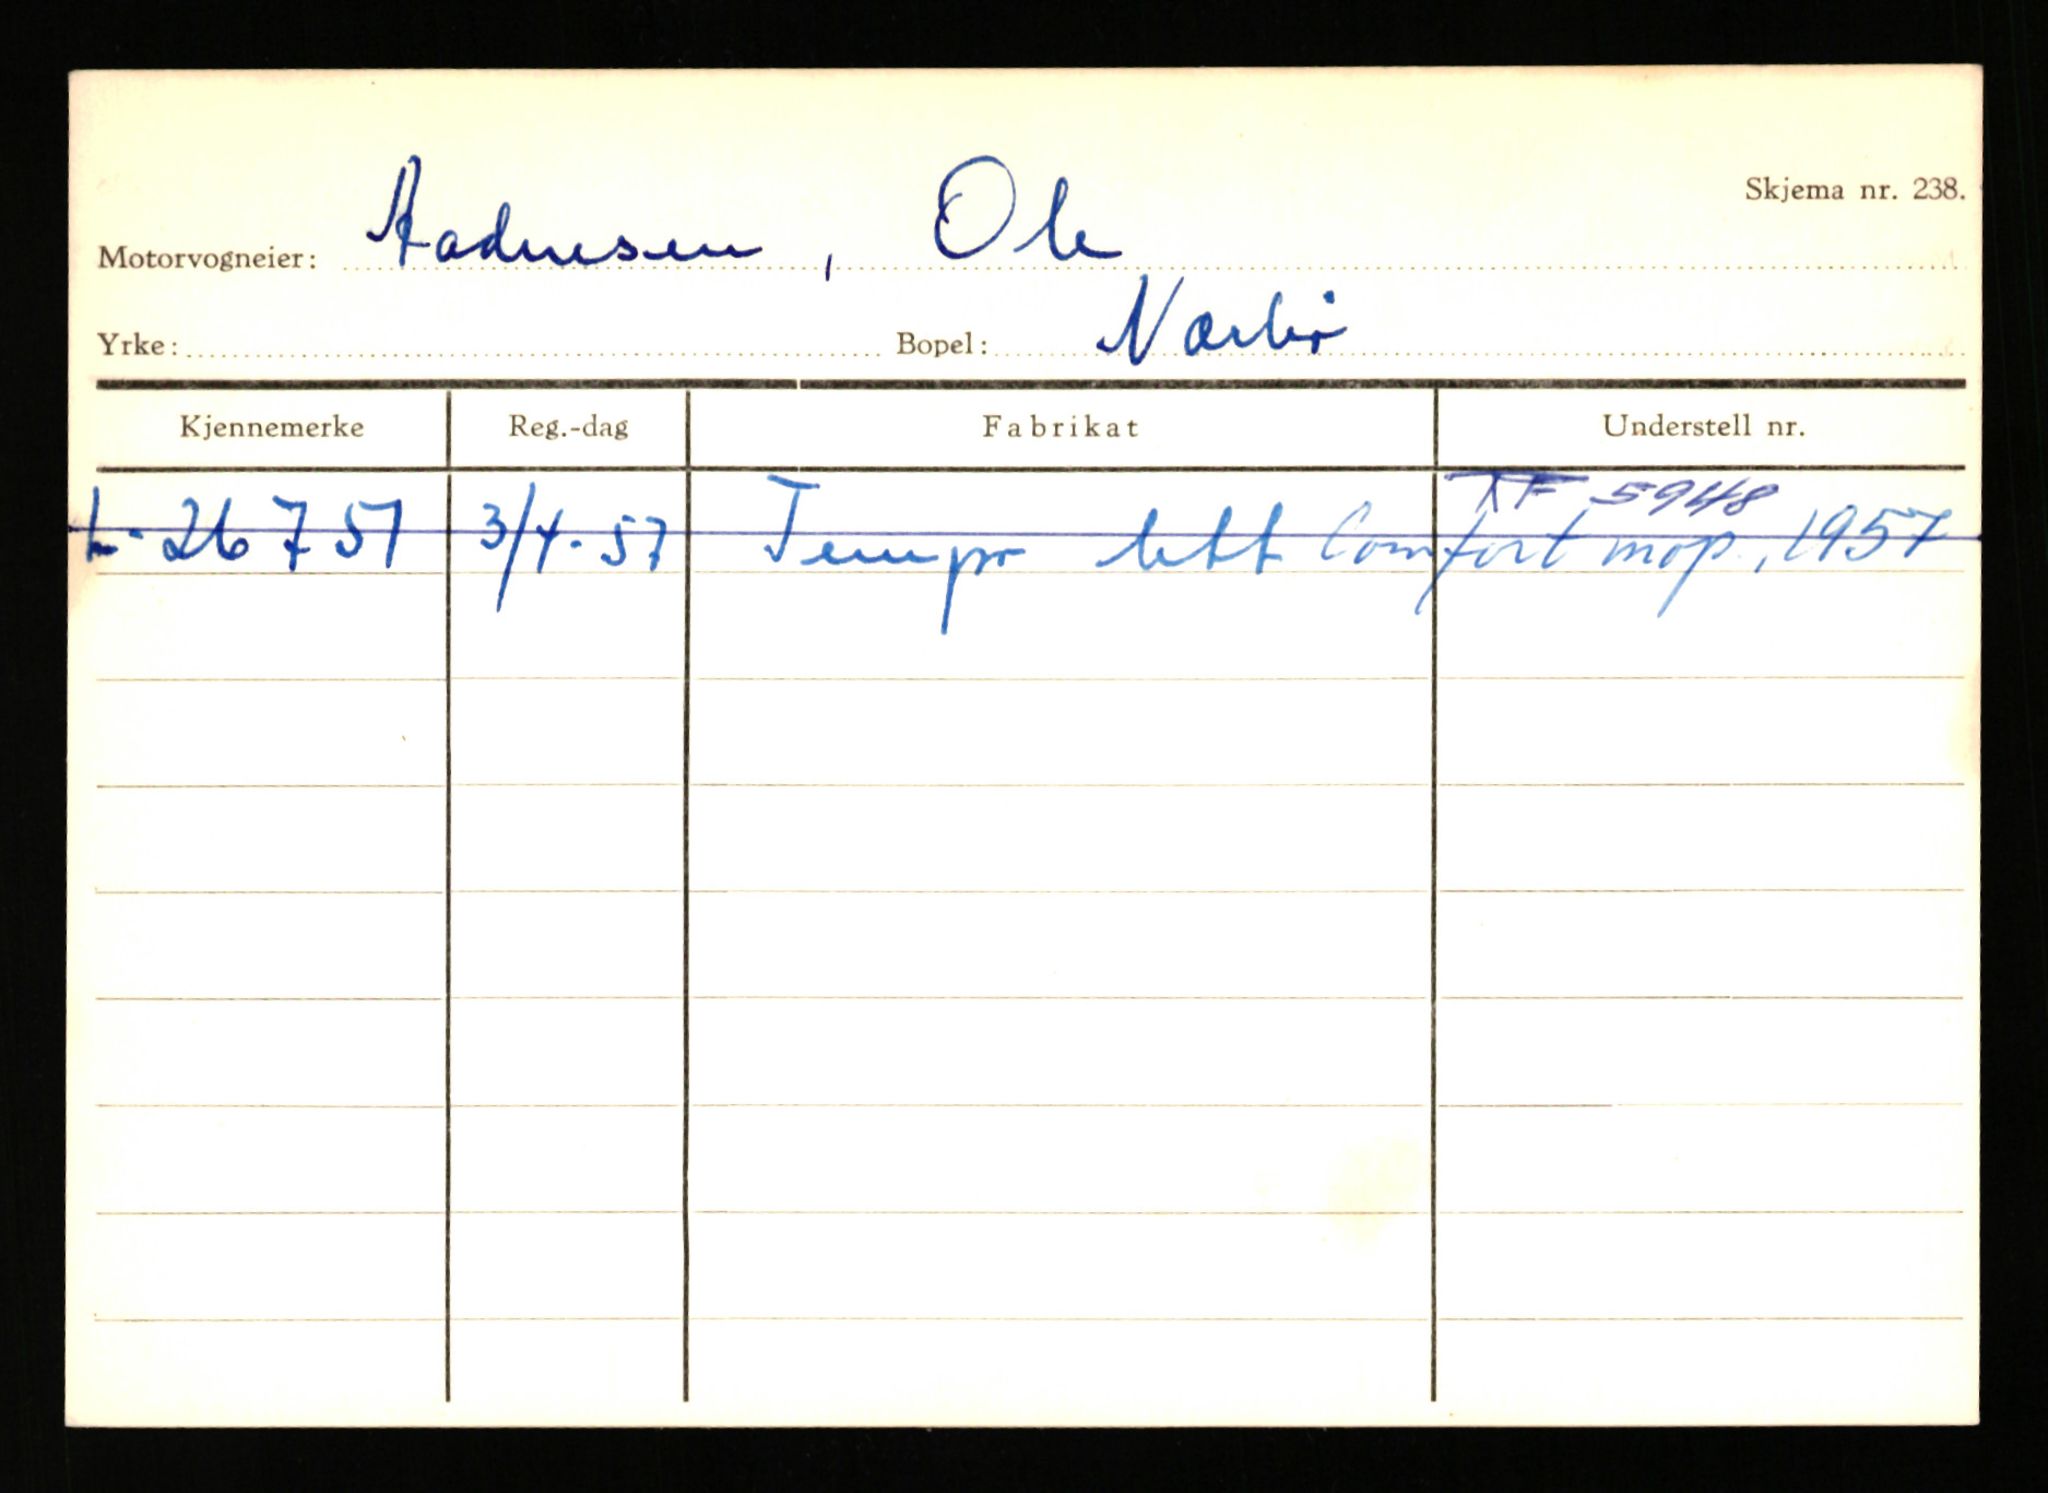 Skjema nr. 238.
Motorvogneier: Aadnesen, Ole
Yrke: Bopel: Nærbø
Kjennemerke Reg.-dag Fabrikat Understell nr.
TF 5948
L- 26751 3/4-57 Tempo lett Comfort mop., 1957